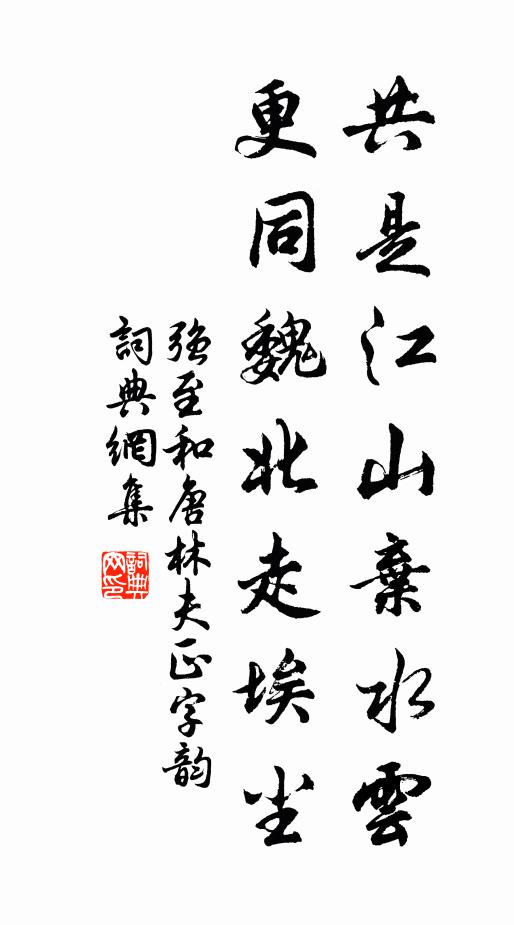 共是江山棄水雲
更同魏北走埃尘
強至和唐林夫正字韵
詞典網集
詞典网印